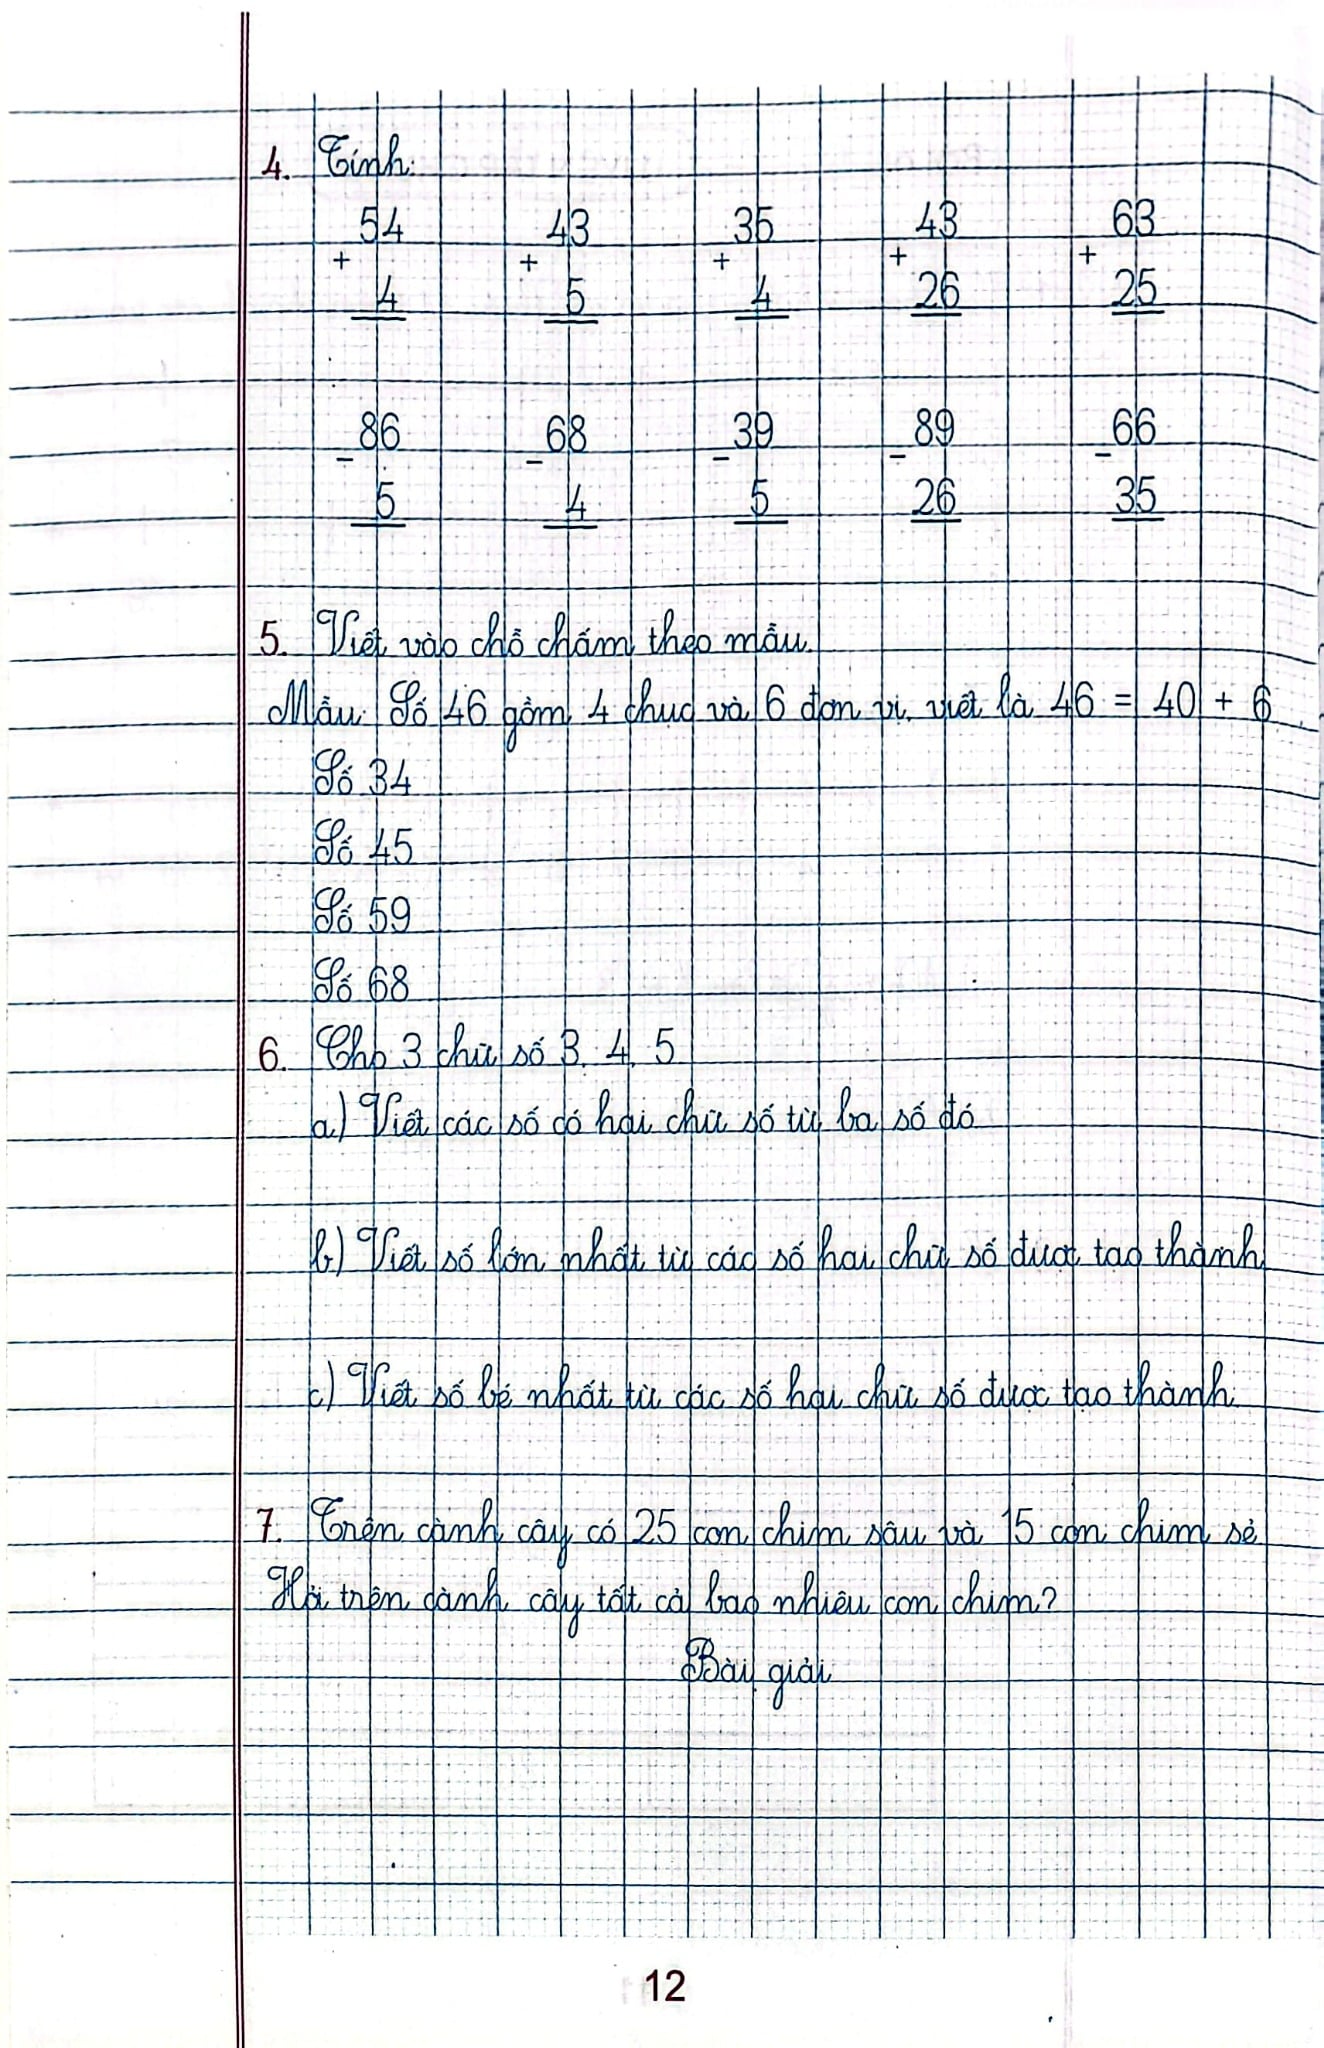 4. Tính:
54 43 35 43 63
+ + + + +
4 5 4 26 25
86 68 39 89 66
- - - - -
5 4 5 26 35
5. Viết vào chỗ chấm theo mẫu.
Mẫu: Số 46 gồm 4 chục và 6 đơn vị, viết là 46 = 40 + 6
Số 34
Số 45
Số 59
Số 68
6. Cho 3 chữ số 3, 4, 5
a) Viết các số có hai chữ số từ ba số đó
b) Viết số lớn nhất từ các số hai chữ số được tạo thành
c) Viết số bé nhất từ các số hai chữ số được tạo thành
7. Trên cành cây có 25 con chim sâu và 15 con chim sẻ
Hỏi trên cành cây tất cả bao nhiêu con chim?
Bài giải
12